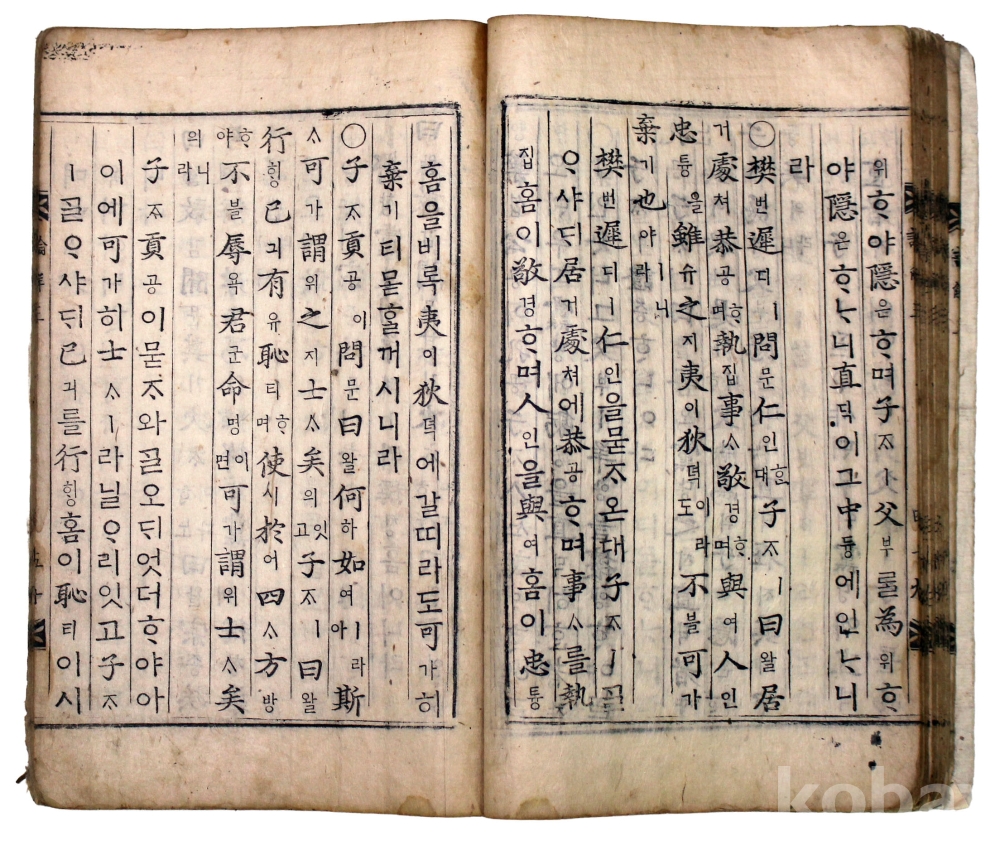 위ᄒᆞ야隱은ᄒᆞ며子ᄌᆞㅣ父부롤為위ᄒᆞ
야隱은ᄒᆞᄂᆞ니直딕이그中듕에인ᄂᆞ니
라
○樊번遲디ㅣ問문仁인ᄒᆞᆫ대子ᄌᆞㅣ曰왈居
거處쳐恭공ᄒᆞ며執집事ᄉᆞ敬경ᄒᆞ며與여人인
忠튱을雖슈之지夷이狄뎍이라도不블可가
棄기也야ㅣ니라
樊번遲디ㅣ仁인을묻ᄌᆞ온대子ᄌᆞㅣᄀᆞᆯ
ᄋᆞ샤ᄃᆡ居거處쳐에恭공ᄒᆞ며事ᄉᆞ를執
집홈이敬경ᄒᆞ며人인을與여홈이忠튱
홈을비록夷이狄뎍에갈띠라도可가히
棄기티몯ᄒᆞᆯ꺼시니라
○子ᄌᆞ貢공이問문曰왈何하如여ㅣ라아斯
ᄉᆞ可가謂위之지士ᄉᆞ矣의잇고子ᄌᆞㅣ曰왈
行ᄒᆡᆼ己긔有유恥티ᄒᆞ며使시於어四ᄉᆞ方방
ᄒᆞ야不블辱욕君군命명이면可가謂위士ᄉᆞ矣
의니라
子ᄌᆞ貢공이묻ᄌᆞ와ᄀᆞᆯ오ᄃᆡ엇더ᄒᆞ야아
이에可가히士ᄉᆞㅣ라닐ᄋᆞ리잇고子ᄌᆞ
ㅣᄀᆞᆯᄋᆞ샤ᄃᆡ己긔를行ᄒᆡᆼ홈이恥티이시
koba